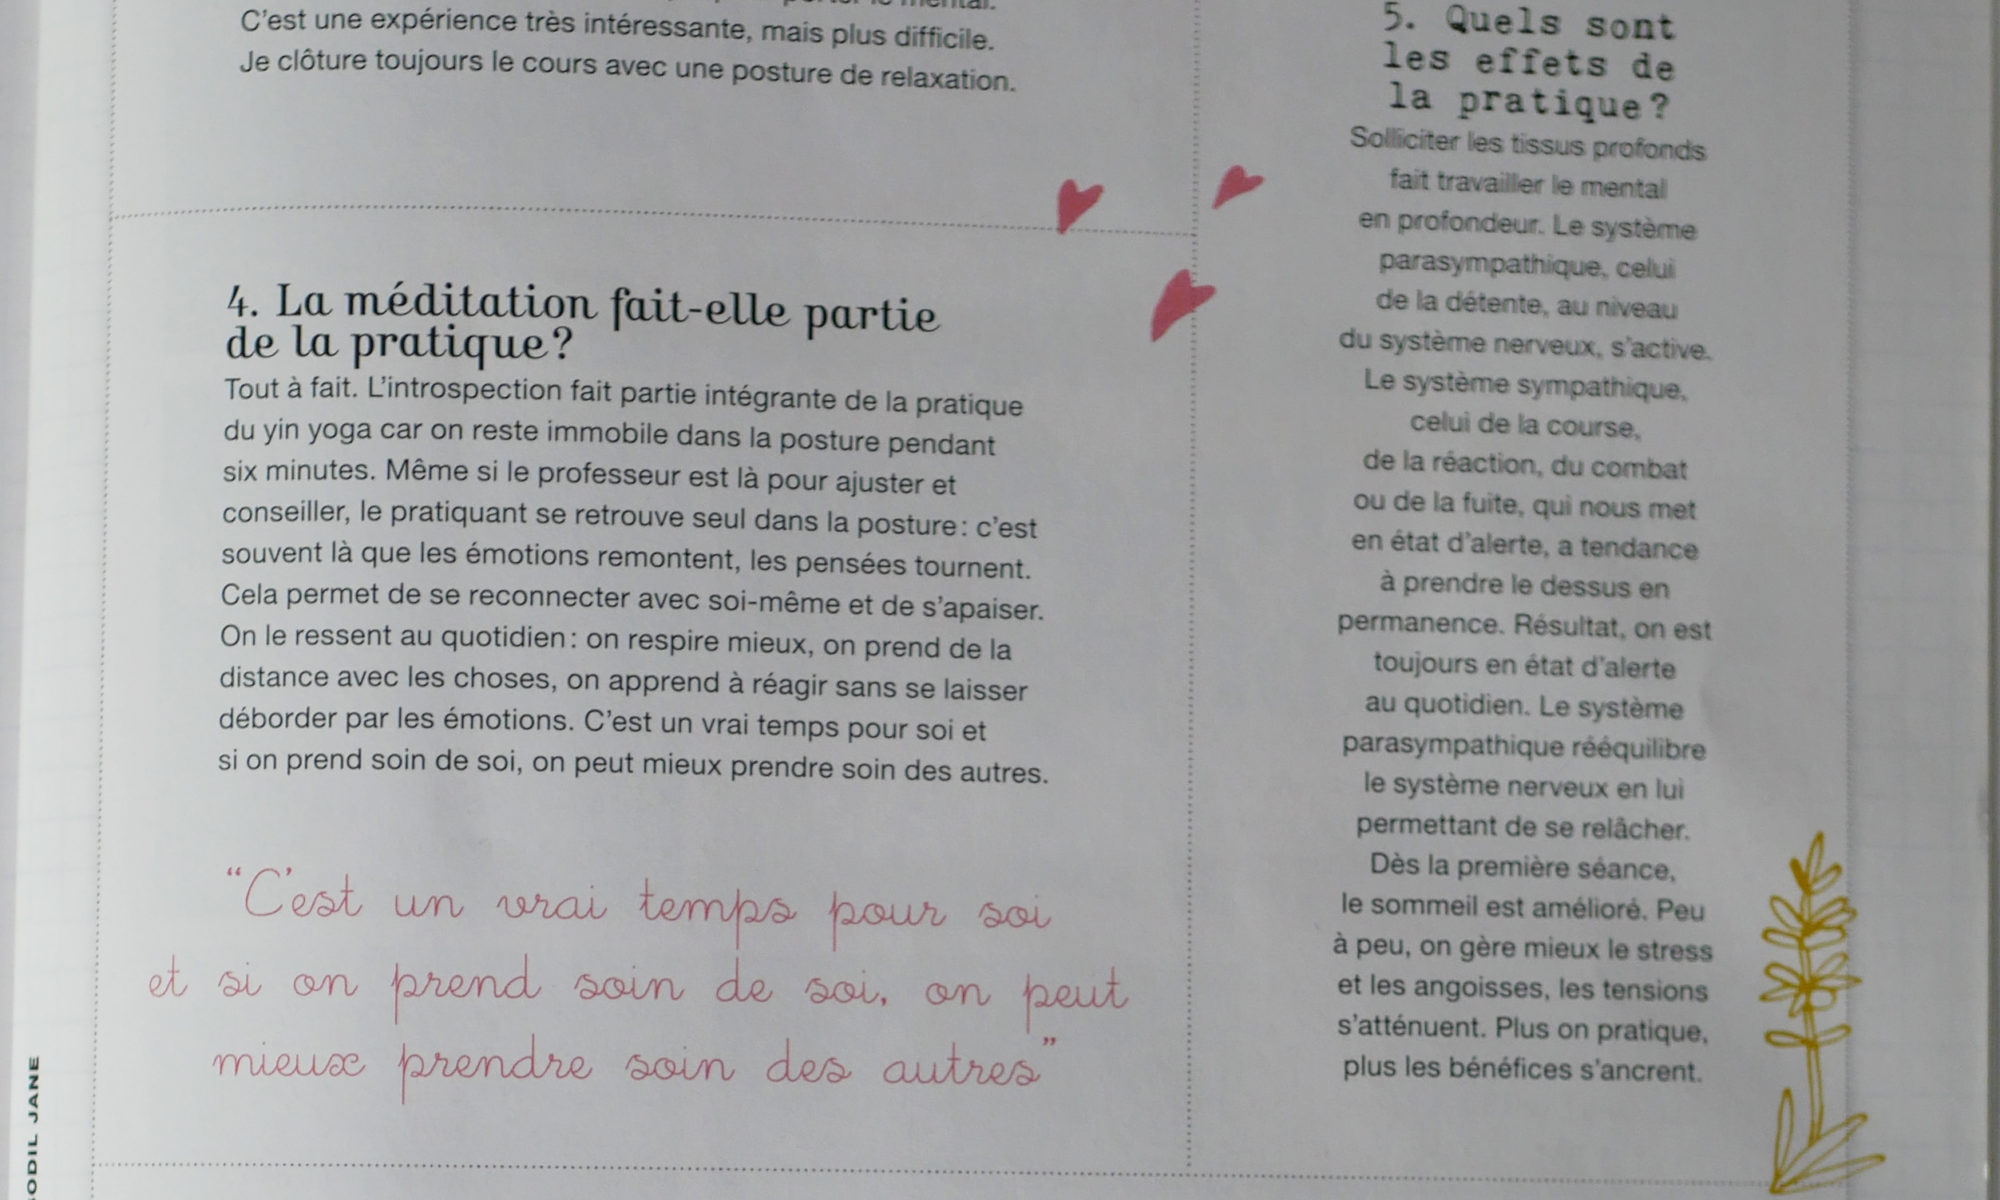 C'est une expérience très intéressante, mais plus difficile.
Je clôture toujours le cours avec une posture de relaxation.
4. La méditation fait-elle partie
de la pratique?
Tout à fait. L'introspection fait partie intégrante de la pratique
du yin yoga car on reste immobile dans la posture pendant
six minutes. Même si le professeur est là pour ajuster et
conseiller, le pratiquant se retrouve seul dans la posture : c'est
souvent là que les émotions remontent, les pensées tournent.
Cela permet de se reconnecter avec soi-même et de s'apaiser.
On le ressent au quotidien : on respire mieux, on prend de la
distance avec les choses, on apprend à réagir sans se laisser
déborder par les émotions. C'est un vrai temps pour soi et
si on prend soin de soi, on peut mieux prendre soin des autres.
“C'est un vrai temps pour soi
et si on prend soin de soi, on peut
mieux prendre soin des autres”
5. Quels sont
les effets de
la pratique?
Solliciter les tissus profonds
fait travailler le mental
en profondeur. Le système
parasympathique, celui
de la détente, au niveau
du système nerveux, s'active.
Le système sympathique,
celui de la course,
de la réaction, du combat
ou de la fuite, qui nous met
en état d'alerte, a tendance
à prendre le dessus en
permanence. Résultat, on est
toujours en état d'alerte
au quotidien. Le système
parasympathique rééquilibre
le système nerveux en lui
permettant de se relâcher.
Dès la première séance,
le sommeil est amélioré. Peu
à peu, on gère mieux le stress
et les angoisses, les tensions
s'atténuent. Plus on pratique,
plus les bénéfices s'ancrent.
ODIL JANE